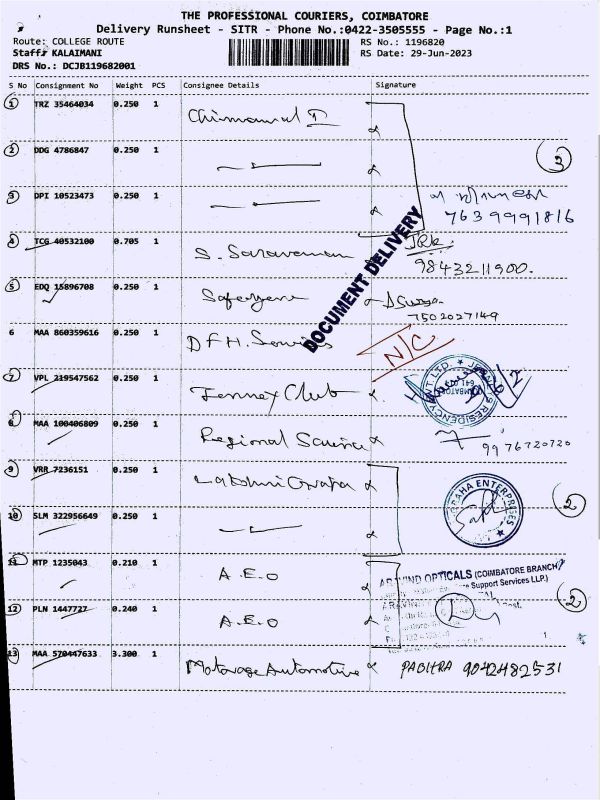 THE PROFESSIONAL COURIERS, COIMBATORE
Delivery Runsheet - SITR - Phone No.:0422-3505555 - Page No.:1
Route: COLLEGE ROUTE RS No.: 1196820
Staff: KALAIMANI RS Date: 29-Jun-2023
DRS No.: DCJB119682001
S No Consignment No Weight PCS Consignee Details Signature
1 TRZ 35464034 0.250 1
2 DDG 4786847 0.250 1
3
3 DPI 10523473 0.250 1
7639991816
DOCUMENT DELIVERY
4 TCG 40532100 0.705 1 S. Saravanan
9843211900.
5 EDQ 15896708 0.250 1
7502027149
6 MAA 860359616 0.250 1 DFH. Services N/C
7 VPL 219547562 0.250 1 Club
RESIDENCY PVT. LTD.
8 MAA 100406809 0.250 1 Regional Science
9976720720
9 VRR 7236151 0.250 1 Lakshmi
ENTERPRISES
2
10 SLM 322956649 0.250 1
11 MTP 1235043 0.210 1 A.E.O
ARVIND OPTICALS (COIMBATORE BRANCH)
Support Services LLP.)
2
12 PLN 1447727 0.240 1 A.E.O
13 MAA 570447633 3.300 1 Motorage Automotive PABITRA 9042482531